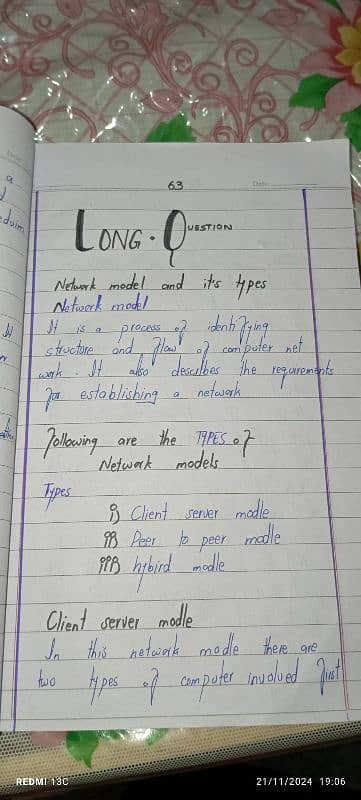 63
LONG. QUESTION
Network model and it's types
Network model
It is a process of identifying
structure and flow of computer net
work. It also descibes the requirements
for establishing a network
Following are the TYPES of
Network models
Types
i) Client server modle
ii) Peer to peer modle
iii) hybird modle
Client server modle
In this network modle there are
two types of computer involved Just
REDMI 13C
21/11/2024 19:06